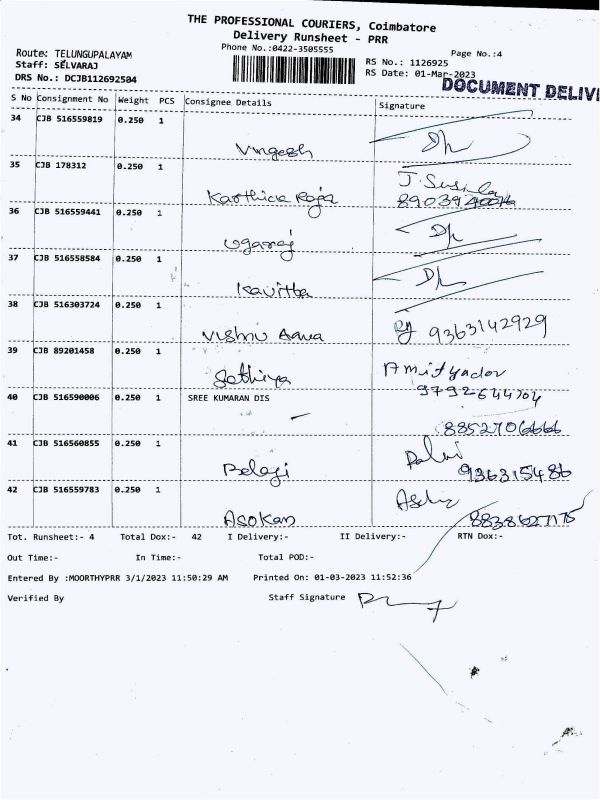 THE PROFESSIONAL COURIERS, Coimbatore
Delivery Runsheet - PRR
Phone No.:0422-3505555
Page No.:4
Route: TELUNGUPALAYAM
Staff: SELVARAJ
RS No.: 1126925
DRS No.: DCJB112692504
RS Date: 01-Mar-2023
DOCUMENT DELIV
S No Consignment No Weight PCS Consignee Details Signature
34 CJB 516559819 0.250 1
Vingesh
35 CJB 178312 0.250 1
J. Susila
Karthick Raja
36 CJB 516559441 0.250 1
Ugaraj
37 CJB 516558584 0.250 1
Kavitha
38 CJB 516303724 0.250 1
Vishnu 9363142929
39 CJB 89201458 0.250 1
Amit yadav
Sathiya
40 CJB 516590006 0.250 1 SREE KUMARAN DIS
8852706666
41 CJB 516560855 0.250 1
Balaji 936315486
42 CJB 516559783 0.250 1
Asokan 8838627175
Tot. Runsheet:- 4 Total Dox:- 42 I Delivery:- II Delivery:- RTN Dox:-
Out Time:- In Time:- Total POD:-
Entered By :MOORTHYPRR 3/1/2023 11:50:29 AM Printed On: 01-03-2023 11:52:36
Verified By Staff Signature